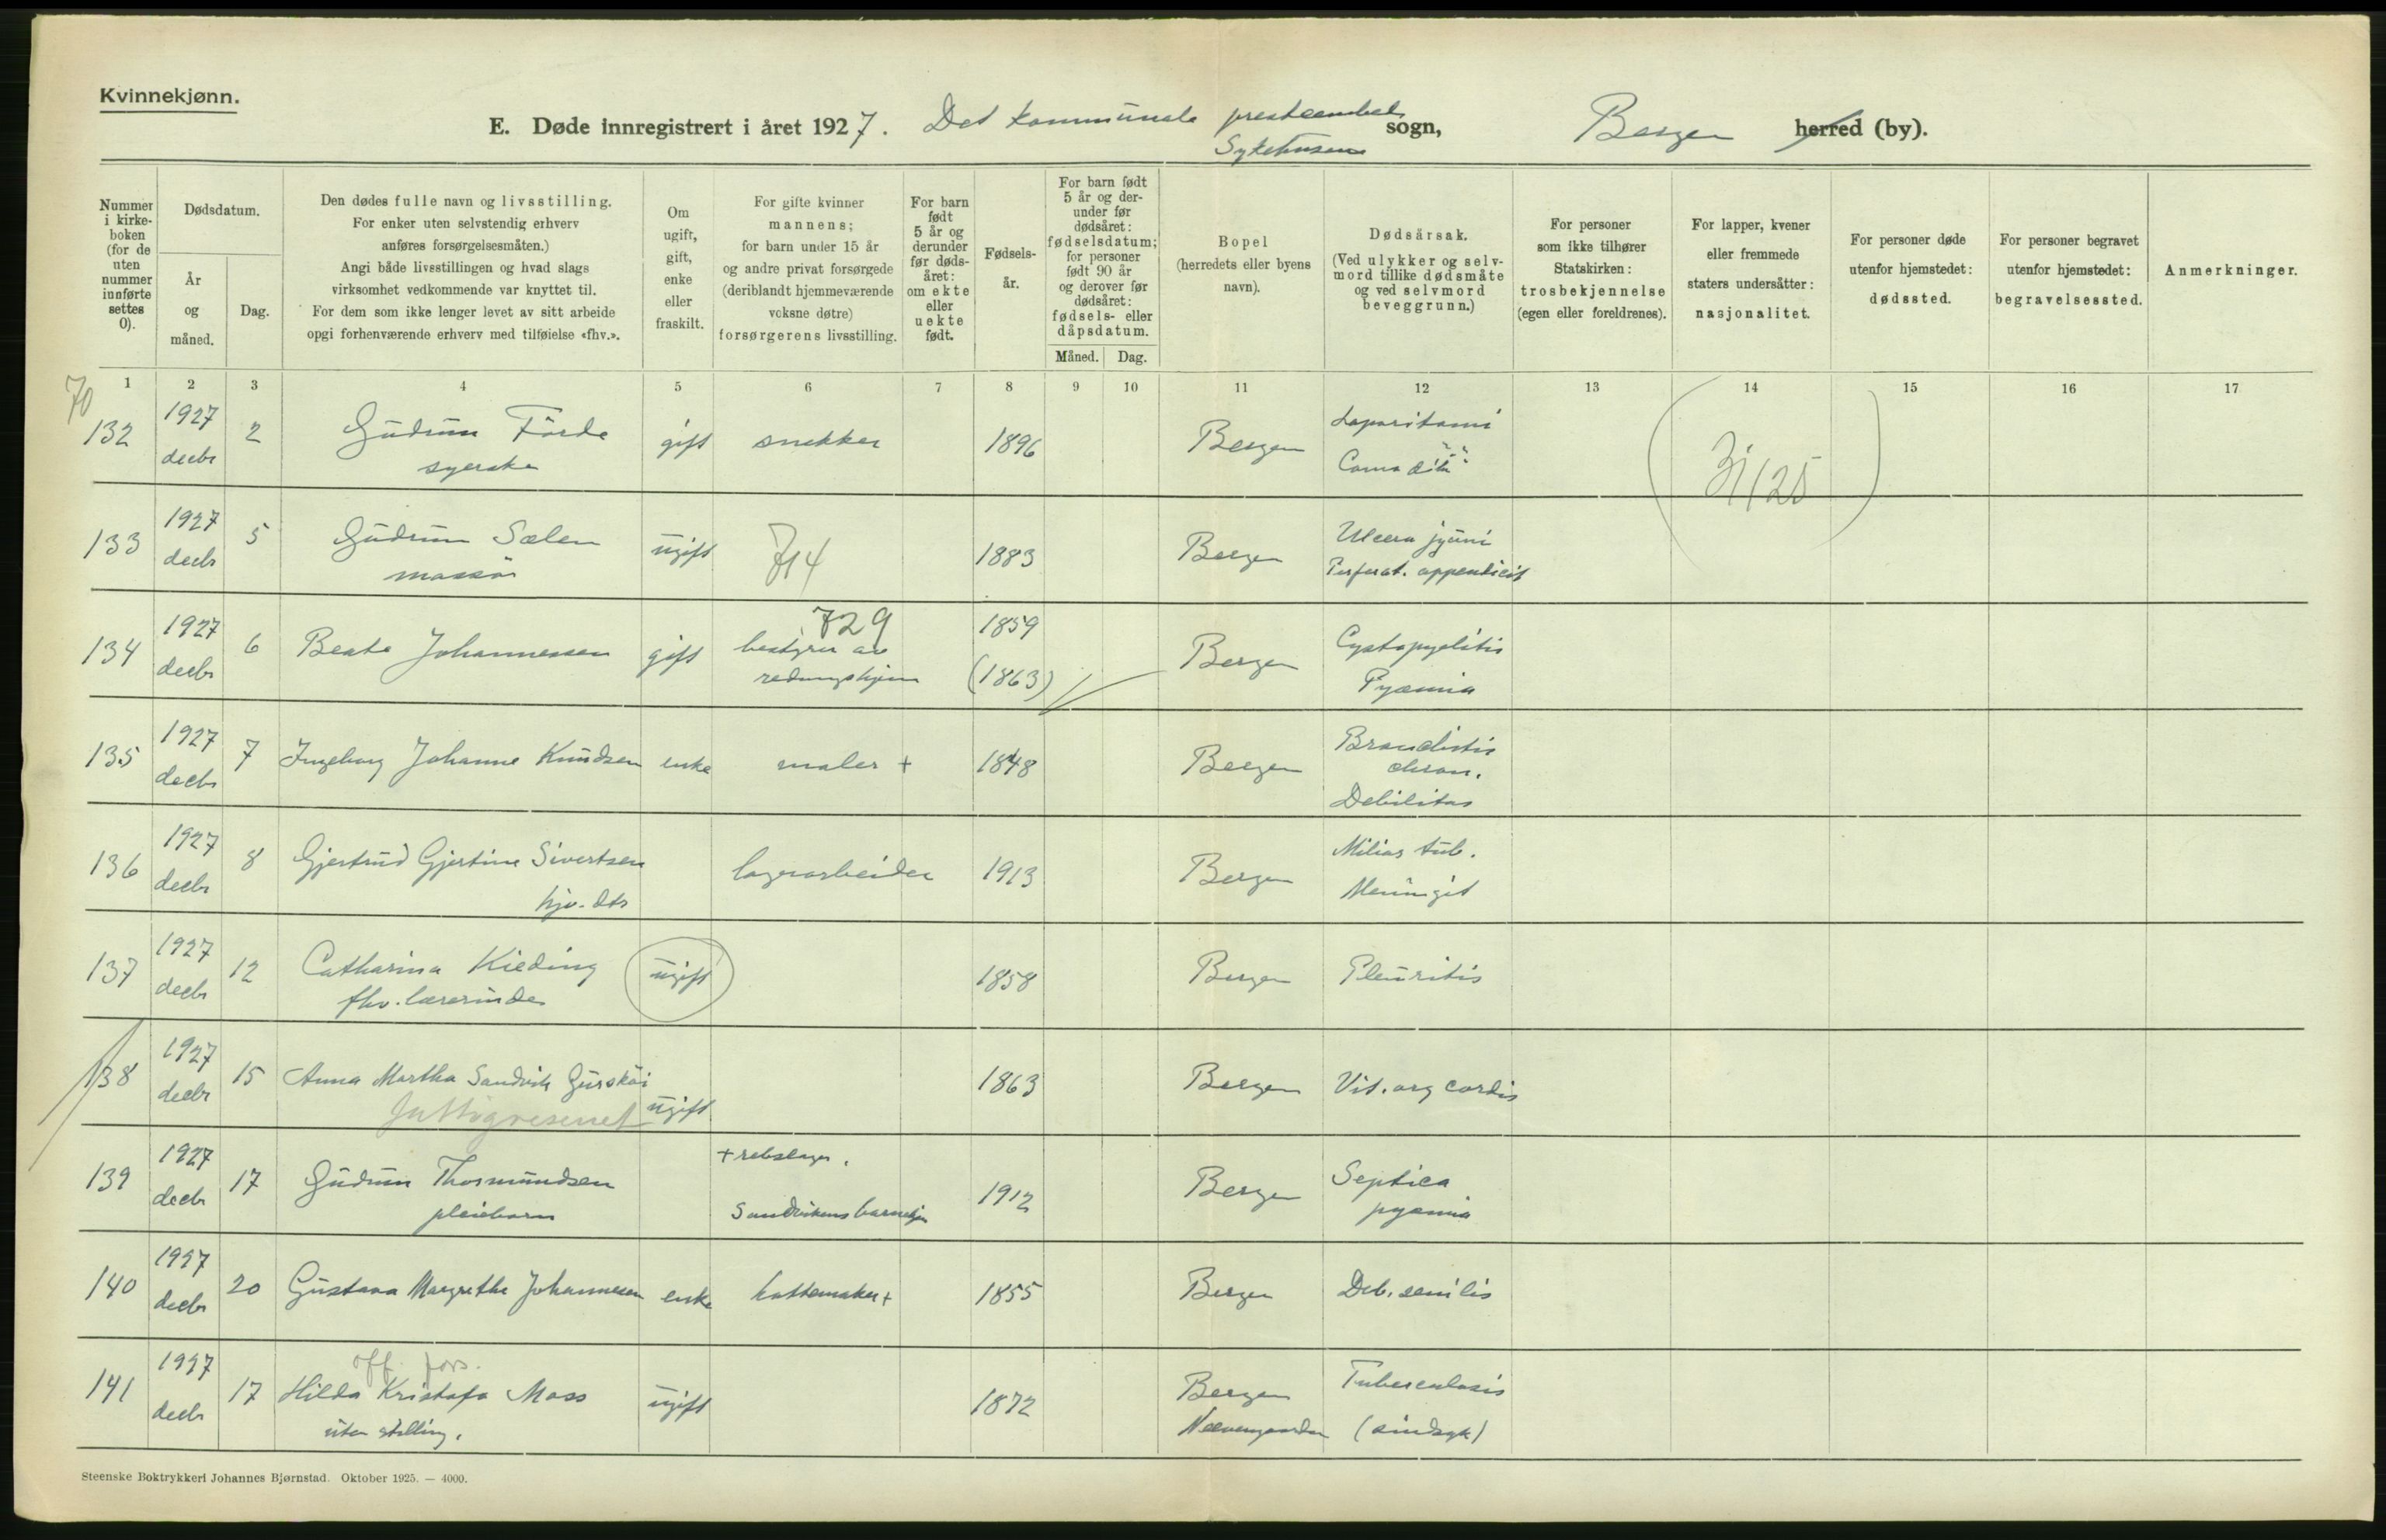 Kvinnekjønn.
E. Døde innregistrert i året 1927. Det kommunale presteembede sogn, Bergen herred (by).
Sykehusene
Nummer i kirkeboken (for de uten nummer innførte settes 0).
Dødsdatum.
År og måned.
Dag.
Den dødes fulle navn og livsstilling.
For enker uten selvstendig erhverv
anføres forsørgelsesmåten.)
Angi både livsstillingen og hvad slags
virksomhet vedkommende var knyttet til.
For dem som ikke lenger levet av sitt arbeide
opgi forhenværende erhverv med tilføielse «fhv.».
Om ugift, gift, enke eller fraskilt.
For gifte kvinner
mannens;
for barn under 15 år
og andre privat forsørgede
(deriblandt hjemmeværende
voksne døtre)
forsørgerens livsstilling.
For barn født 5 år og derunder før dødsåret: om ekte eller uekte født.
Fødselsår.
For barn født 5 år og derunder før dødsåret: fødselsdatum; for personer født 90 år og derover før dødsåret: fødsels- eller dåpsdatum.
Måned. Dag.
Bopel
(herredets eller byens
navn).
Dødsårsak.
(Ved ulykker og selvmord tillike dødsmåte og ved selvmord beveggrunn.)
For personer
som ikke tilhører
Statskirken:
trosbekjennelse
(egen eller foreldrenes).
For lapper, kvener
eller fremmede
staters undersåtter:
nasjonalitet.
For personer døde
utenfor hjemstedet:
dødssted.
For personer begravet
utenfor hjemstedet:
begravelsessted.
Anmerkninger.
1 2 3 4 5 6 7 8 9 10 11 12 13 14 15 16 17
70
132 1927 decbr 2 Gudrun Förde gift snekker 1896 Bergen
syerske
31/25
133 1927 decbr 5 Gudrun Sælen ugift 714 1883 Bergen Ulcera jejuni
massør Perforat. appendicit
729
134 1927 decbr 6 Beate Johannessen gift bestyrer av 1859 Bergen Cystopyelitis
redningshjem (1863) Pyæmia
135 1927 decbr 7 Ingeborg Johanne Knudsen enke maler + 1848 Bergen Bronchitis
chron.
Debilitas
136 1927 decbr 8 Gjertrud Gjertine Sivertsen lagerarbeider 1913 Bergen Miliær tub.
hjv. dtr Meningit
137 1927 decbr 12 Catharina Kieding ugift 1858 Bergen Pleuritis
fhv. lærerinde
138 1927 decbr 15 Anna Martha Sandvik Gurskøi ugift 1863 Bergen Vit. org cordis
fattigvesenet
139 1927 decbr 17 Gudrun Thormundsen + rebslager. 1912 Bergen Septica
pleiebarn Sandvikens barnehjem pyæmia
140 1927 decbr 20 Gustava Margrethe Johannesen enke hattemaker + 1855 Bergen Deb. senilis
off. fors.
141 1927 decbr 17 Hilda Kristofa Moss ugift 1872 Bergen Tuberculosis
uten stilling. Neevengaarden (sindsyk)
Steenske Boktrykkeri Johannes Bjørnstad. Oktober 1925. — 4000.